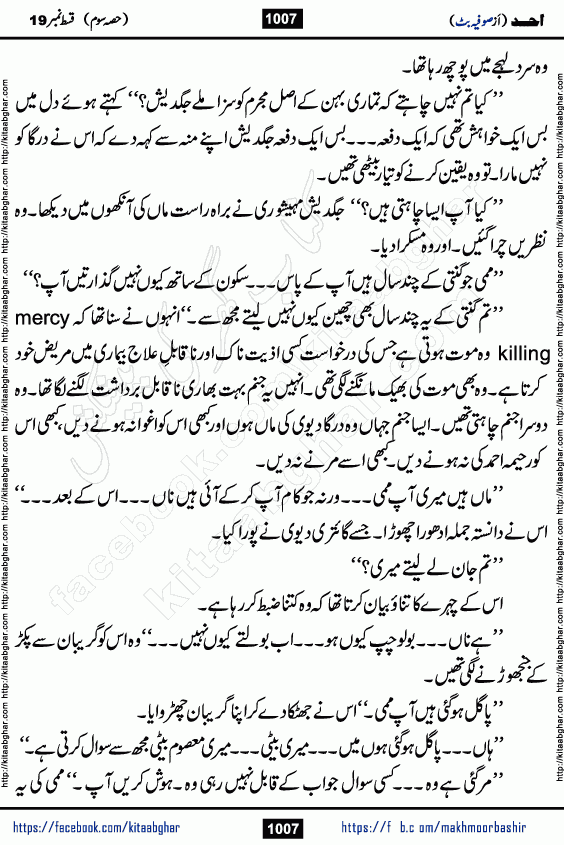 احد (از صوفیہ بٹ) 1007 (حصہ سوم) قسط نمبر 19
وہ سرد لہجے میں پوچھ رہا تھا۔
’’کیا تم نہیں چاہتے کہ تمہاری بہن کے اصل مجرم کو سزا ملے جگدیش؟‘‘ کہتے ہوئے دل میں
بس ایک خواہش تھی کہ ایک دفعہ۔۔۔بس ایک دفعہ جگدیش اپنے منہ سے کہہ دے کہ اس نے درگا کو
نہیں مارا۔ تو وہ یقین کرنے کو تیار بیٹھی تھیں۔
’’کیا آپ ایسا چاہتی ہیں؟‘‘ جگدیش مہیشوری نے براہ راست ماں کی آنکھوں میں دیکھا۔ وہ
نظریں چرا گئیں۔ اور وہ مسکرا دیا۔
’’ممی جو گنتی کے چند سال ہیں آپ کے پاس۔۔۔سکون کے ساتھ کیوں نہیں گذارتیں آپ؟‘‘
’’تم گنتی کے یہ چند سال بھی چھین کیوں نہیں لیتے مجھ سے۔‘‘ انہوں نے سنا تھا کہ mercy
killing وہ موت ہوتی ہے جس کی درخواست کسی اذیت ناک اور ناقابلِ علاج بیماری میں مریض خود
کرتا ہے۔ وہ بھی موت کی بھیک مانگنے لگی تھی۔ انہیں یہ جنم بہت بھاری ناقابل برداشت لگنے لگا تھا۔ وہ
دوسرا جنم چاہتی تھیں۔ ایسا جنم جہاں وہ درگا دیوی کی ماں ہوں اور کبھی اس کو اغوا نہ ہونے دیں، کبھی اس
کو رحیمہ احمد کی نہ ہونے دیں۔ کبھی اسے مرنے نہ دیں۔
’’ماں ہیں میری آپ ممی۔۔۔ورنہ جو کام آپ کر کے آئی ہیں ناں۔۔۔اس کے بعد۔۔۔‘‘
اس نے دانستہ جملہ ادھورا چھوڑا۔ جسے گائتری دیوی نے پورا کیا۔
’’تم جان لے لیتے میری؟‘‘
اس کے چہرے کا تناؤ بیان کرتا تھا کہ وہ کتنا ضبط کر رہا ہے۔
’’ہے ناں۔۔۔بولو چپ کیوں ہو۔۔۔اب بولتے کیوں نہیں۔۔۔‘‘ وہ اس کو گریبان سے پکڑ
کے جھنجھوڑنے لگی تھیں۔
’’پاگل ہو گئی ہیں آپ ممی۔‘‘ اس نے جھٹکا دے کر اپنا گریبان چھڑوایا۔
’’ہاں۔۔۔پاگل ہو گئی ہوں میں۔۔۔میری بیٹی۔۔۔میری معصوم بیٹی مجھ سے سوال کرتی ہے۔‘‘
’’مر گئی ہے وہ۔۔۔کسی سوال جواب کے قابل نہیں رہی وہ۔ ہوش کریں آپ۔‘‘ ممی کی یہ
https://facebook.com/kitaabghar 1007 https://f b.c om/makhmoorbashir
http://kitaabghar.com http://kitaabghar.com http://kitaabghar.com http://kitaabghar.com http://kitaabghar.com http://kitaabghar.com
http://kitaabghar.com http://kitaabghar.com http://kitaabghar.com http://kitaabghar.com http://kitaabghar.com http://kitaabghar.com
کتاب گھر کی پیشکش
facebook.com/kitaabghar
kitaabghar.com